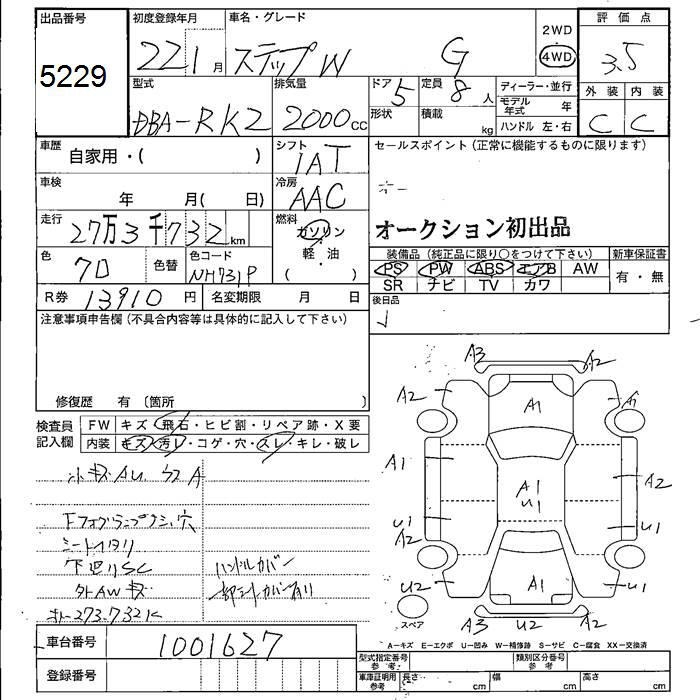 出品番号 初度登録年月 車名・グレード 2WD 評価点
5229 22 1月 ステップW G 4WD 3.5
型式 排気量 ドア 5 定員 8人 ディーラー・並行 外装 内装
DBA-RK2 2000cc 形状 積載 kg モデル年式 年 C C
ハンドル 左・右
車歴 自家用・( ) シフト IAT セールスポイント(正常に機能するものに限ります)
車検 年 月( 日) 冷房 AAC
走行 27万3千732km 燃料 ガソリン 軽・油 ( ) オークション初出品
色 70 色替 色コード NH731P 装備品(純正品に限り○をつけて下さい) 新車保証書
PS PW ABS エアB AW 有・無
SR ナビ TV カワ
R券 13910円 名変期限 月 日 後日品
注意事項申告欄(不具合内容等は具体的に記入して下さい)
修復歴 有 〔箇所 〕
検査員記入欄 FW キズ・飛石・ヒビ割・リペア跡・X要
内装 キズ・汚レ・コゲ・穴・スレ・キレ・破レ
A3 A2
A2 A1 A1
A1 A1 U1 A2
U1 A2 U1
U2 A1 U1
A3 U2 A2
小キズAU
シートヘタリ
下廻りSC ハンドルカバー
外AWキズ 一部シートカバー有り
スペア
A=キズ E=エクボ U=凹み W=補修跡 S=サビ C=腐食 XX=交換済
車台番号 1001627
型式指定番号 参考 類別区分番号 参考
登録番号 車庫証明用 参考 長さ cm 幅 cm 高さ cm